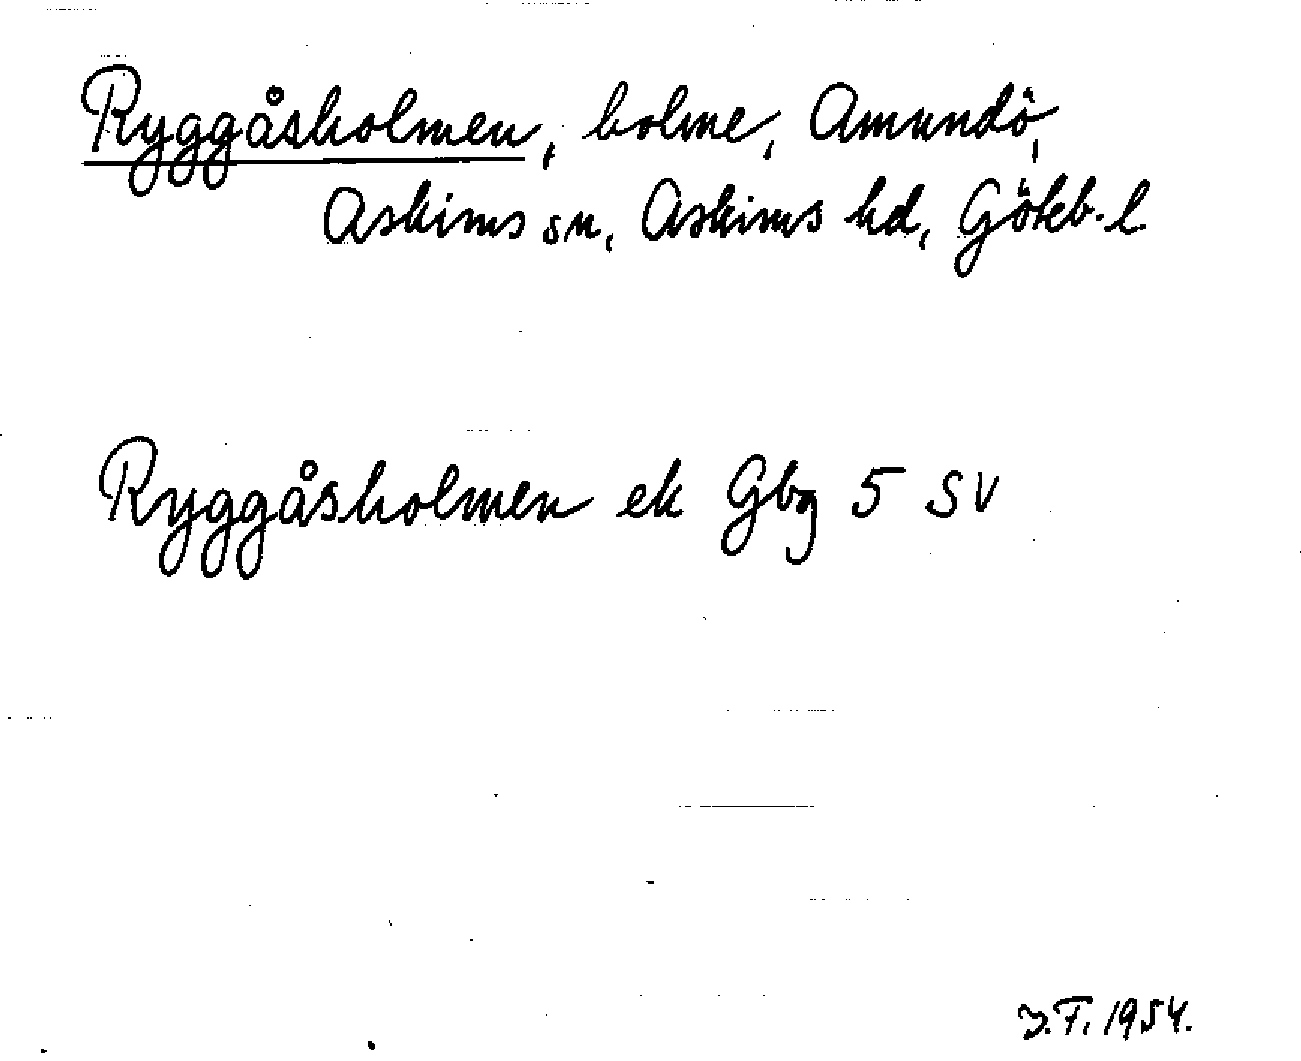 Ryggåsholmen, holme, Amundö,
Askims sn, Askims hd, Göteb. l.
Ryggåsholmen ek Gbg 5 SV
J.F. 1954.